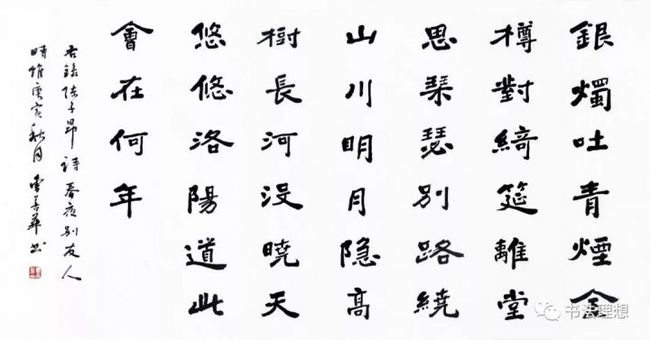 銀燭吐青煙金
樽對綺筵離堂
思琴瑟別路繞
山川明月隐高
樹長河没曉天
悠悠洛陽道此
會在何年
右錄陈子昂詩春夜别友人
時惟庚寅秋月善華书
书法理想